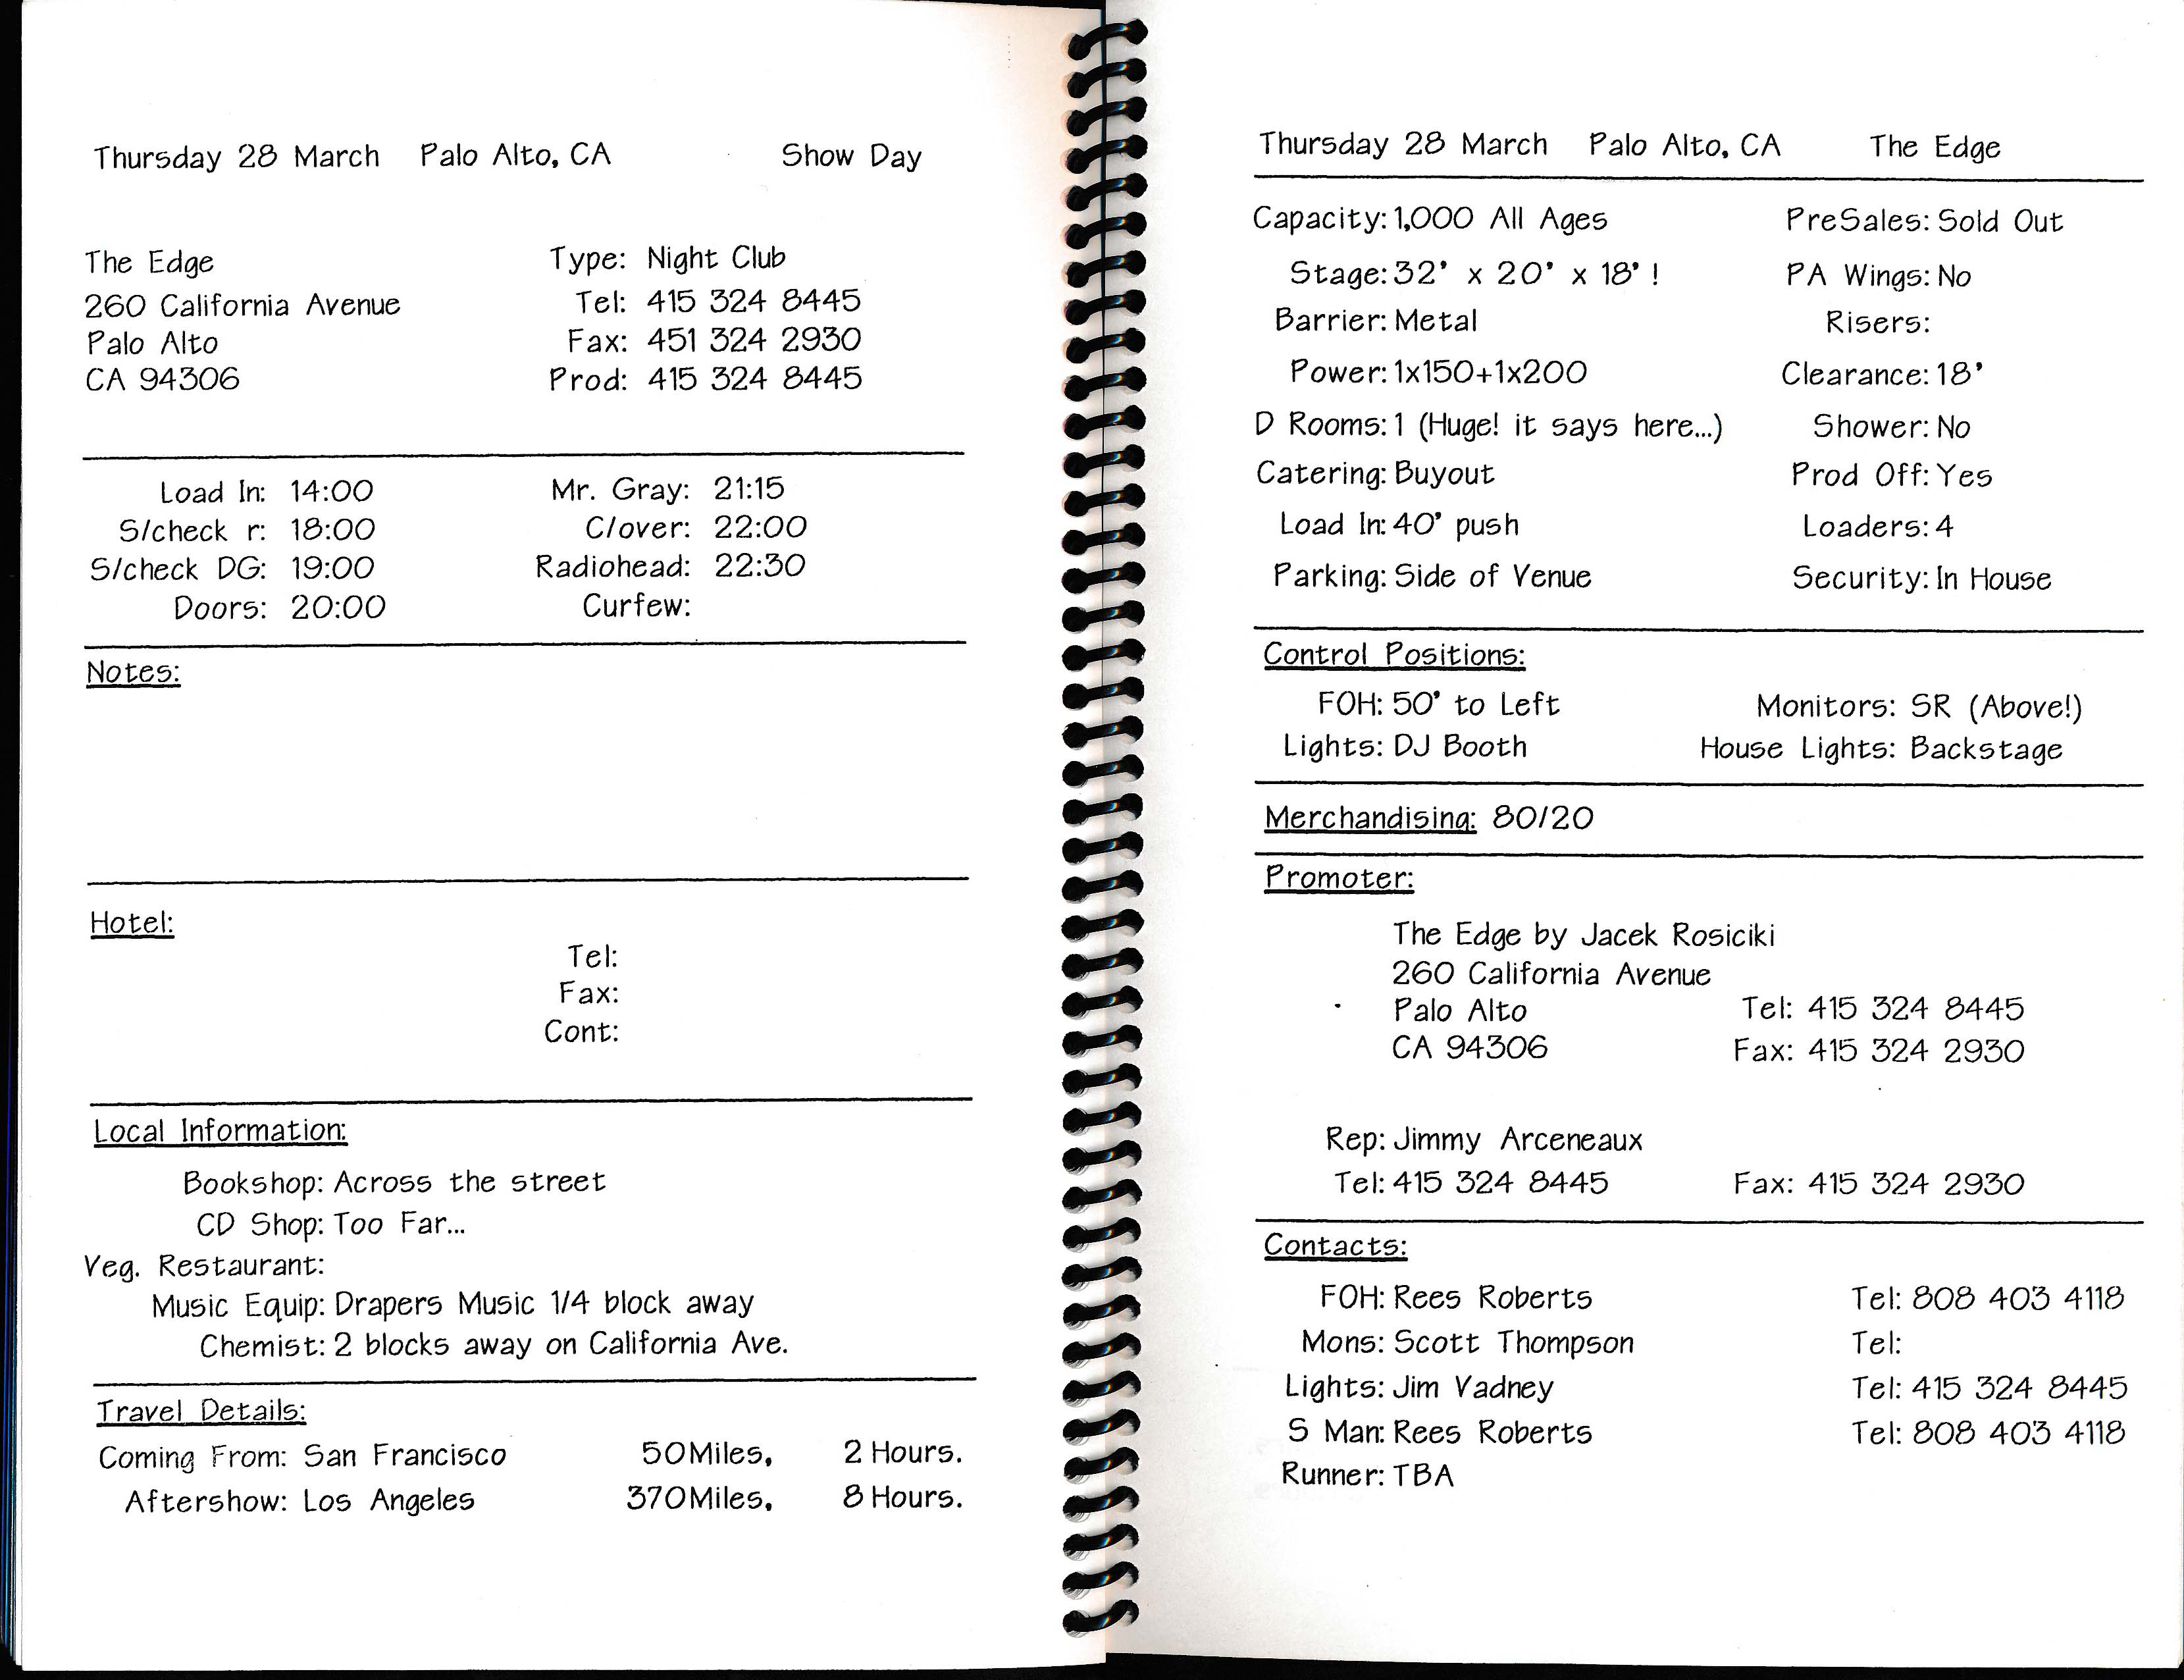 Thursday 28 March Palo Alto, CA Show Day
The Edge
260 California Avenue
Palo Alto
CA 94306
Type: Night Club
Tel: 415 324 8445
Fax: 451 324 2930
Prod: 415 324 8445
Load In: 14:00
S/check r: 18:00
S/check DG: 19:00
Doors: 20:00
Mr. Gray: 21:15
C/over: 22:00
Radiohead: 22:30
Curfew:
Notes:
Hotel:
Tel:
Fax:
Cont:
Local Information:
Bookshop: Across the street
CD Shop: Too Far...
Veg. Restaurant:
Music Equip: Drapers Music 1/4 block away
Chemist: 2 blocks away on California Ave.
Travel Details:
Coming From: San Francisco 50Miles, 2 Hours.
Aftershow: Los Angeles 370Miles, 8 Hours.
Thursday 28 March Palo Alto, CA The Edge
Capacity: 1,000 All Ages PreSales: Sold Out
Stage: 32' x 20' x 18' ! PA Wings: No
Barrier: Metal Risers:
Power: 1x150+1x200 Clearance: 18'
D Rooms: 1 (Huge! it says here...) Shower: No
Catering: Buyout Prod Off: Yes
Load In: 40' push Loaders: 4
Parking: Side of Venue Security: In House
Control Positions:
FOH: 50' to Left Monitors: SR (Above!)
Lights: DJ Booth House Lights: Backstage
Merchandising: 80/20
Promoter:
The Edge by Jacek Rosiciki
260 California Avenue
Palo Alto Tel: 415 324 8445
CA 94306 Fax: 415 324 2930
Rep: Jimmy Arceneaux
Tel: 415 324 8445 Fax: 415 324 2930
Contacts:
FOH: Rees Roberts Tel: 808 403 4118
Mons: Scott Thompson Tel:
Lights: Jim Vadney Tel: 415 324 8445
S Man: Rees Roberts Tel: 808 403 4118
Runner: TBA